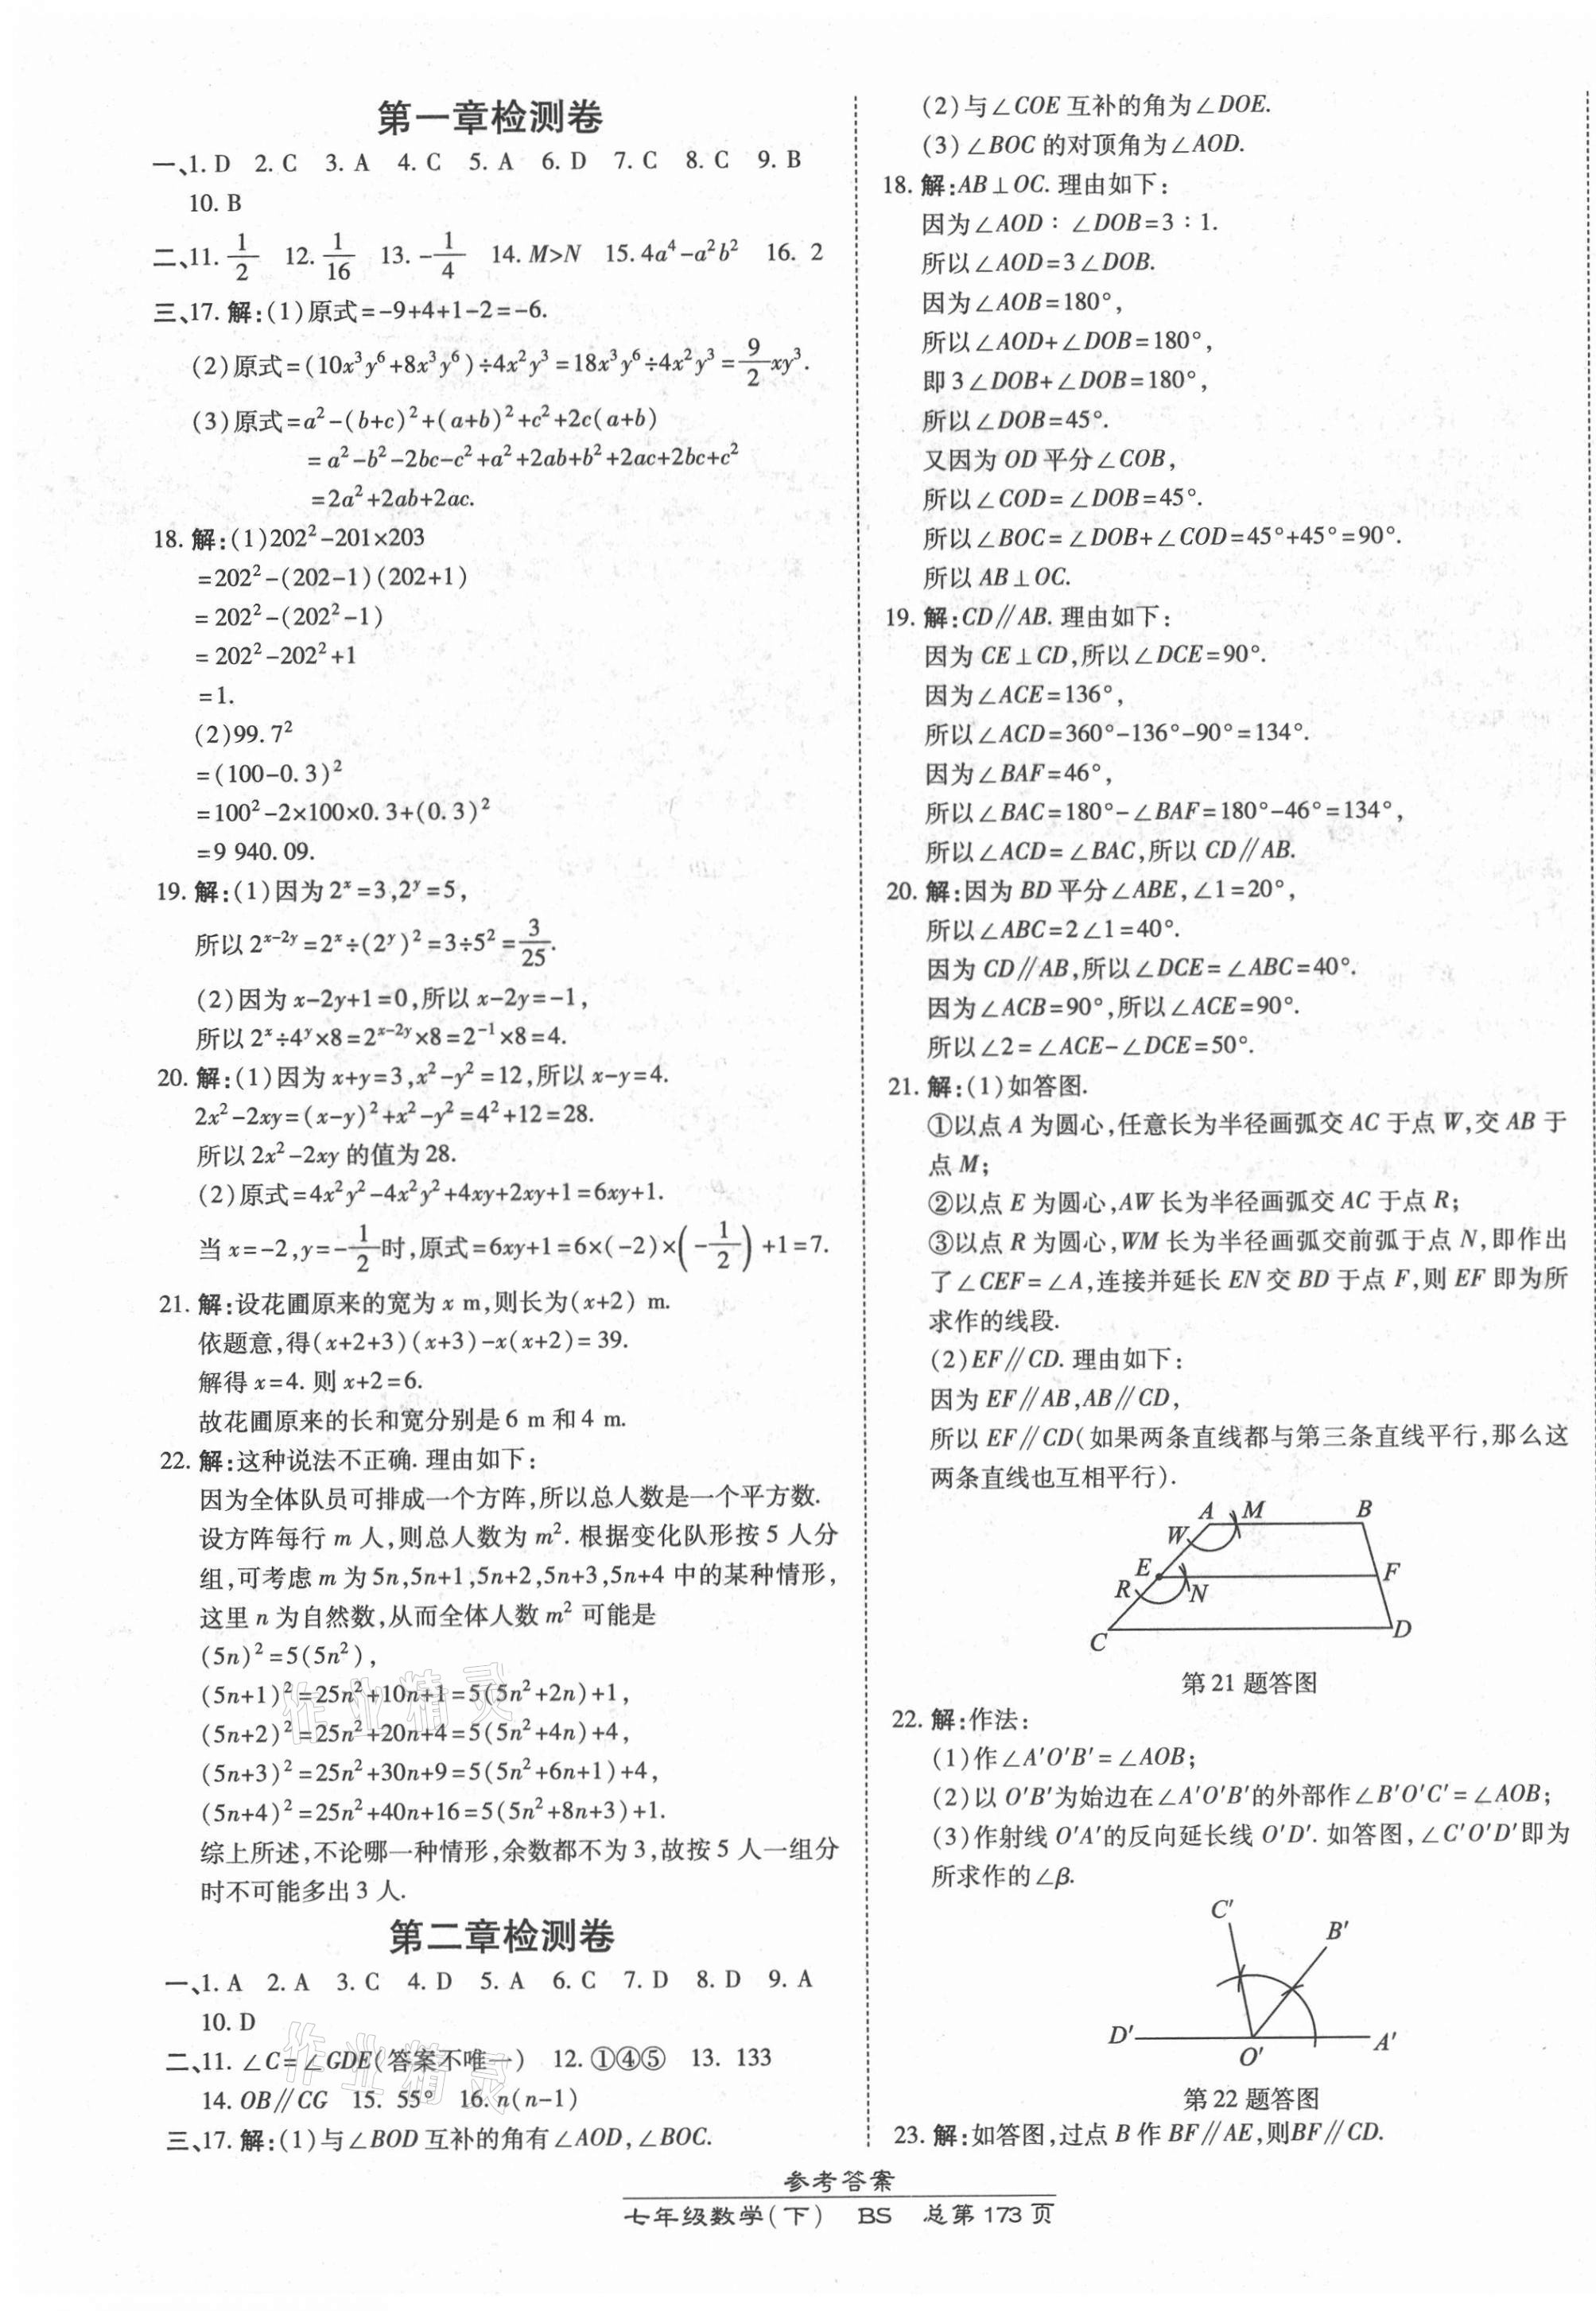 第一章检测卷
一、1. D 2. C 3. A 4. C 5. A 6. D 7. C 8. C 9. B
10. B
二、11. 1/2 12. 1/16 13. -1/4 14. M>N 15. 4a⁴-a²b² 16. 2
三、17. 解:(1)原式=-9+4+1-2=-6.
(2)原式=(10x³y⁶+8x³y⁶)÷4x²y³=18x³y⁶÷4x²y³=9/2xy³.
(3)原式=a²-(b+c)²+(a+b)²+c²+2c(a+b)
=a²-b²-2bc-c²+a²+2ab+b²+2ac+2bc+c²
=2a²+2ab+2ac.
18. 解:(1)202²-201×203
=202²-(202-1)(202+1)
=202²-(202²-1)
=202²-202²+1
=1.
(2)99.7²
=(100-0.3)²
=100²-2×100×0.3+(0.3)²
=9 940.09.
19. 解:(1)因为2ˣ=3,2ʸ=5,
所以2ˣ⁻²ʸ=2ˣ÷(2ʸ)²=3÷5²=3/25.
(2)因为x-2y+1=0,所以x-2y=-1,
所以2ˣ÷4ʸ×8=2ˣ⁻²ʸ×8=2⁻¹×8=4.
20. 解:(1)因为x+y=3,x²-y²=12,所以x-y=4.
2x²-2xy=(x-y)²+x²-y²=4²+12=28.
所以2x²-2xy的值为28.
(2)原式=4x²y²-4x²y²+4xy+2xy+1=6xy+1.
当x=-2,y=-1/2时,原式=6xy+1=6×(-2)×(-1/2)+1=7.
21. 解:设花圃原来的宽为x m,则长为(x+2) m.
依题意,得(x+2+3)(x+3)-x(x+2)=39.
解得x=4. 则x+2=6.
故花圃原来的长和宽分别是6 m和4 m.
22. 解:这种说法不正确. 理由如下:
因为全体队员可排成一个方阵,所以总人数是一个平方数.
设方阵每行m人,则总人数为m². 根据变化队形按5人分
组,可考虑m为5n,5n+1,5n+2,5n+3,5n+4中的某种情形,
这里n为自然数,从而全体人数m²可能是
(5n)²=5(5n²),
(5n+1)²=25n²+10n+1=5(5n²+2n)+1,
(5n+2)²=25n²+20n+4=5(5n²+4n)+4,
(5n+3)²=25n²+30n+9=5(5n²+6n+1)+4,
(5n+4)²=25n²+40n+16=5(5n²+8n+3)+1.
综上所述,不论哪一种情形,余数都不为3,故按5人一组分
时不可能多出3人.
作业精灵
第二章检测卷
一、1. A 2. A 3. C 4. D 5. A 6. C 7. D 8. D 9. A
10. D
二、11. ∠C=∠GDE(答案不唯一) 12. ①④⑤ 13. 133
14. OB∥CG 15. 55° 16. n(n-1)
作业精灵
三、17. 解:(1)与∠BOD互补的角有∠AOD,∠BOC.
(2)与∠COE互补的角为∠DOE.
(3)∠BOC的对顶角为∠AOD.
18. 解:AB⊥OC. 理由如下:
因为∠AOD:∠DOB=3:1.
所以∠AOD=3∠DOB.
因为∠AOB=180°,
所以∠AOD+∠DOB=180°,
即3∠DOB+∠DOB=180°,
所以∠DOB=45°.
又因为OD平分∠COB,
所以∠COD=∠DOB=45°.
所以∠BOC=∠DOB+∠COD=45°+45°=90°.
所以AB⊥OC.
19. 解:CD∥AB. 理由如下:
因为CE⊥CD,所以∠DCE=90°.
因为∠ACE=136°,
所以∠ACD=360°-136°-90°=134°.
因为∠BAF=46°,
所以∠BAC=180°-∠BAF=180°-46°=134°,
所以∠ACD=∠BAC,所以CD∥AB.
20. 解:因为BD平分∠ABE,∠1=20°,
所以∠ABC=2∠1=40°.
因为CD∥AB,所以∠DCE=∠ABC=40°.
因为∠ACB=90°,所以∠ACE=90°.
所以∠2=∠ACE-∠DCE=50°.
21. 解:(1)如答图.
①以点A为圆心,任意长为半径画弧交AC于点W,交AB于
点M;
②以点E为圆心,AW长为半径画弧交AC于点R;
③以点R为圆心,WM长为半径画弧交前弧于点N,即作出
了∠CEF=∠A,连接并延长EN交BD于点F,则EF即为所
求作的线段.
(2)EF∥CD. 理由如下:
因为EF∥AB,AB∥CD,
所以EF∥CD(如果两条直线都与第三条直线平行,那么这
两条直线也互相平行).
A M B
W
E F
R N
C D
第21题答图
22. 解:作法:
(1)作∠A'O'B'=∠AOB;
(2)以O'B'为始边在∠A'O'B'的外部作∠B'O'C'=∠AOB;
(3)作射线O'A'的反向延长线O'D'. 如答图,∠C'O'D'即为
所求作的∠β.
C' B'
D' O' A'
第22题答图
23. 解:如答图,过点B作BF∥AE,则BF∥CD.
参考答案
七年级数学(下) BS 总第173页